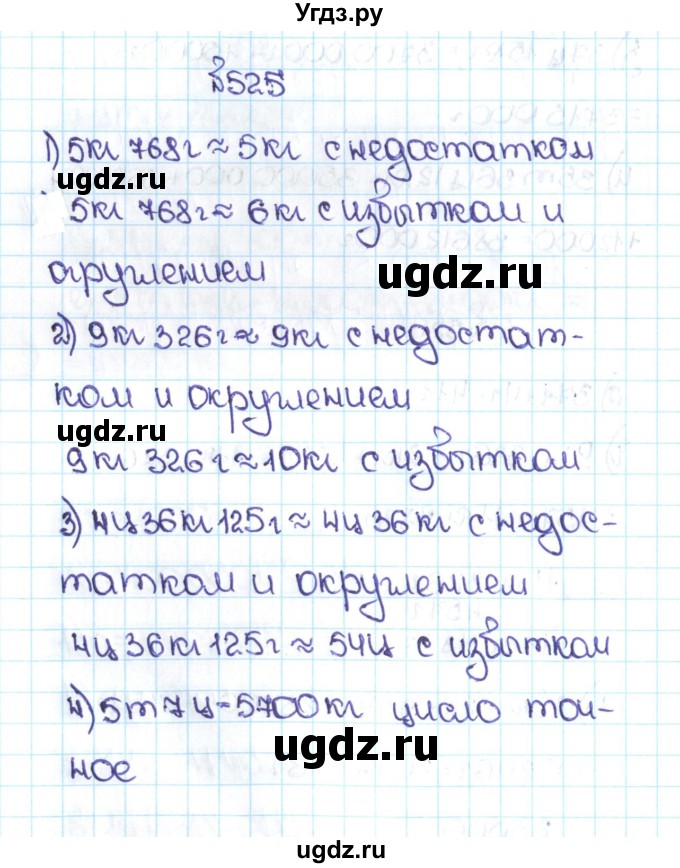 Угдз.ру
№525
1) 5кг 768г ≈ 5кг с недостатком
ugdz.ru
5кг 768г ≈ 6кг с избытком и
округлением
ugdz.ru
2) 9кг 326г ≈ 9кг с недостат-
ком и округлением
ugdz.ru
9кг 326г ≈ 10кг с избытком
3) 4ц 36кг 125г ≈ 4ц 36кг с недос-
татком и округлением
4ц 36кг 125г ≈ 54ц с избытком
4) 5т 7ц = 5700кг число точ-
ugdz.ru
ное
ugdz.ru